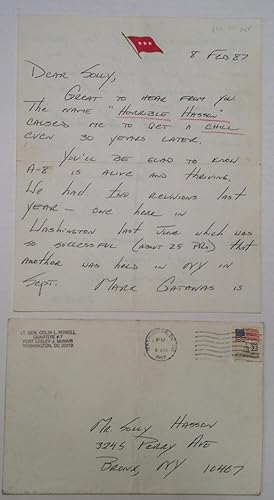 8 Feb 87
Dear Solly,
Great to hear from you.
The name "Horrible Hasson"
caused me to get a chill
even 30 years later.
You'll be glad to know
A-8 is alive and thriving.
We had two reunions last
year - one here in
Washington last June which was
so successful (about 25 PRs) that
another was held in NY in
Sept. Mark Gatanas is
LT. GEN. COLIN L. POWELL
QUARTERS #7
FORT LESLEY J. McNAIR
WASHINGTON, DC 20319
PM
1987
22
Mr Solly Hasson
3245 Perry Ave
Bronx, NY 10467